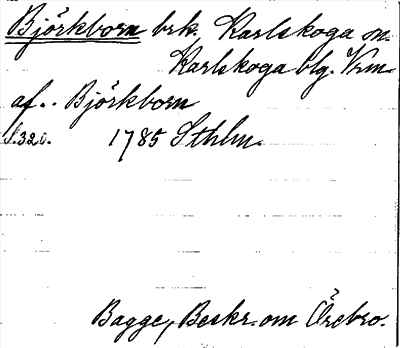 Björkborn brk. Karlskoga sn.
Karlskoga blg. Vrm.
af.. Björkborn
S.320. 1785 Sthlm.
Bagge, Beskr. om Örebro.